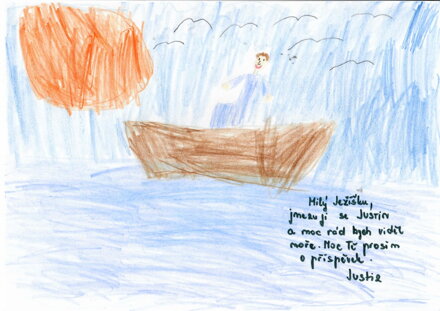 Milý Ježíšku,
jmenuji se Justin
a moc rád bych viděl
moře. Moc Tě prosím
o příspěvek.
Justin